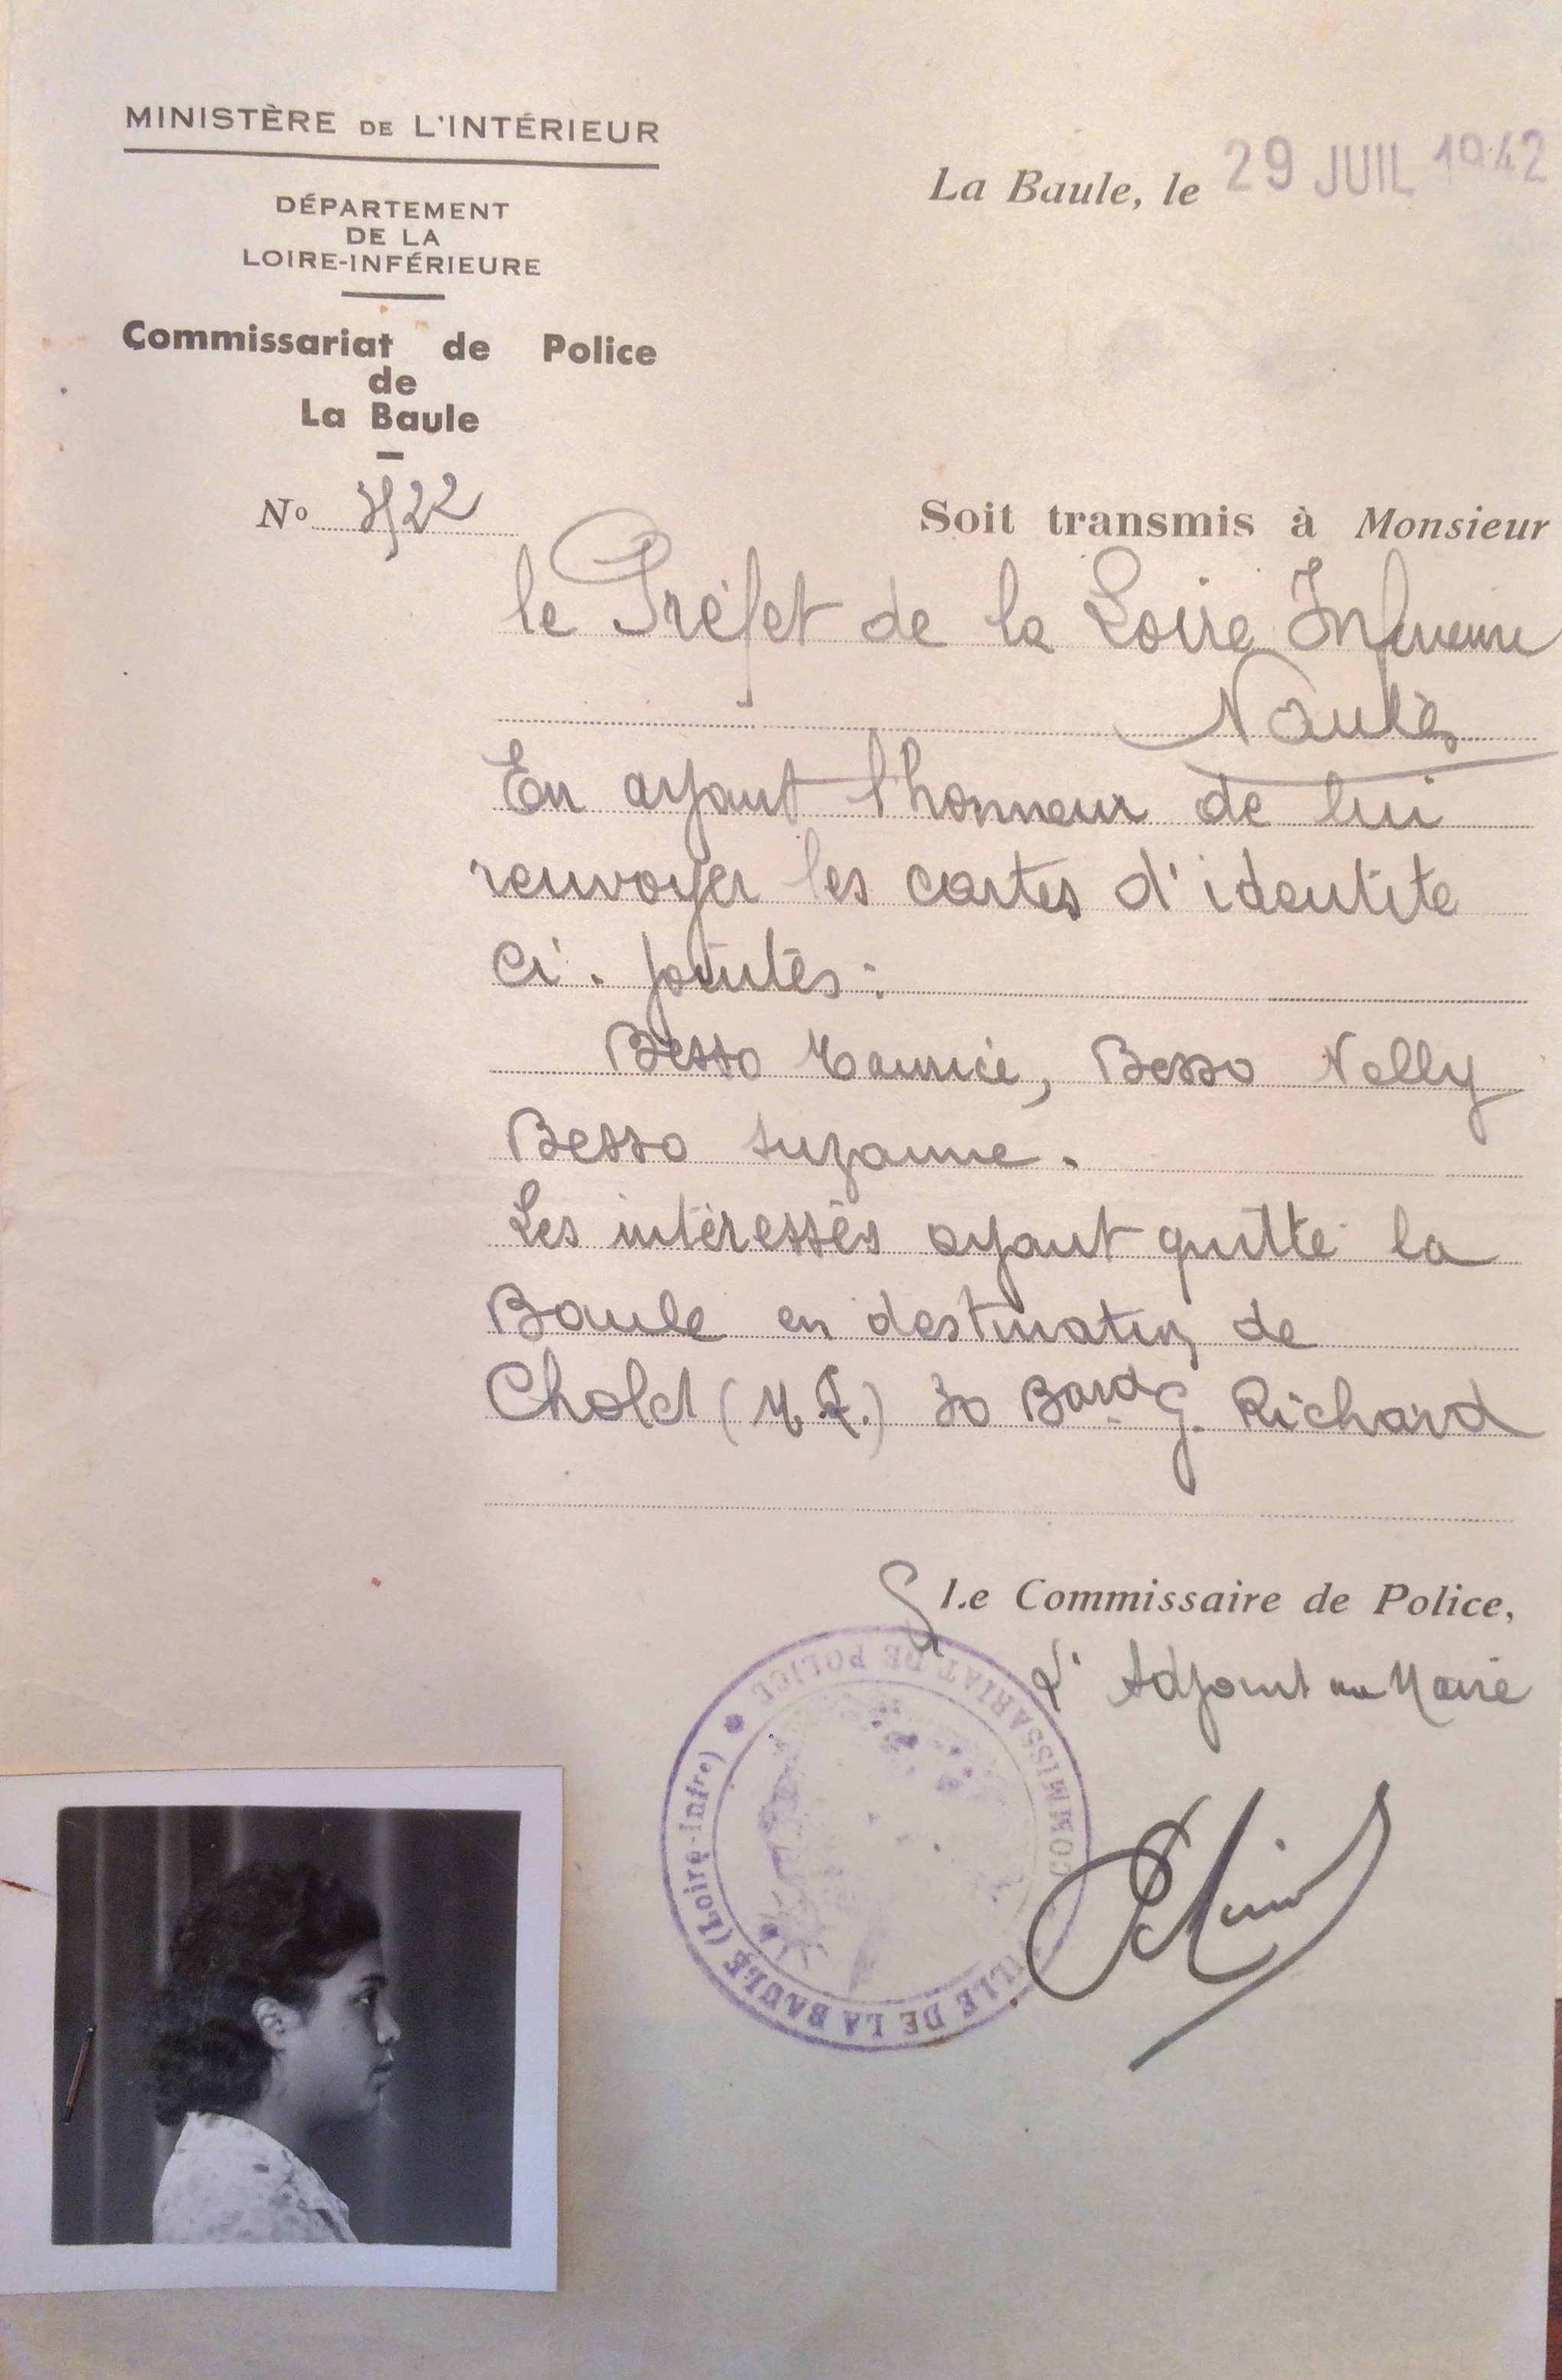 MINISTÈRE DE L'INTÉRIEUR
DÉPARTEMENT
DE LA
LOIRE-INFÉRIEURE
Commissariat de Police
de
La Baule
No
La Baule, le 29 JUIL 1942
Soit transmis à Monsieur
le Préfet de la Loire Inferieure
Nantes
En ayant l'honneur de lui
renvoyer les cartes d'identite
ci. jointes :
Besso Maurice, Besso Nelly
Besso Suzanne.
Les intéressés ayant quitté la
Baule en destination de
Cholet (M. L.) 30 Bard G. Richard
Le Commissaire de Police,
L'Adjoint au Maire
VILLE DE LA BAULE (Loire-Infre) COMMISSARIAT DE POLICE